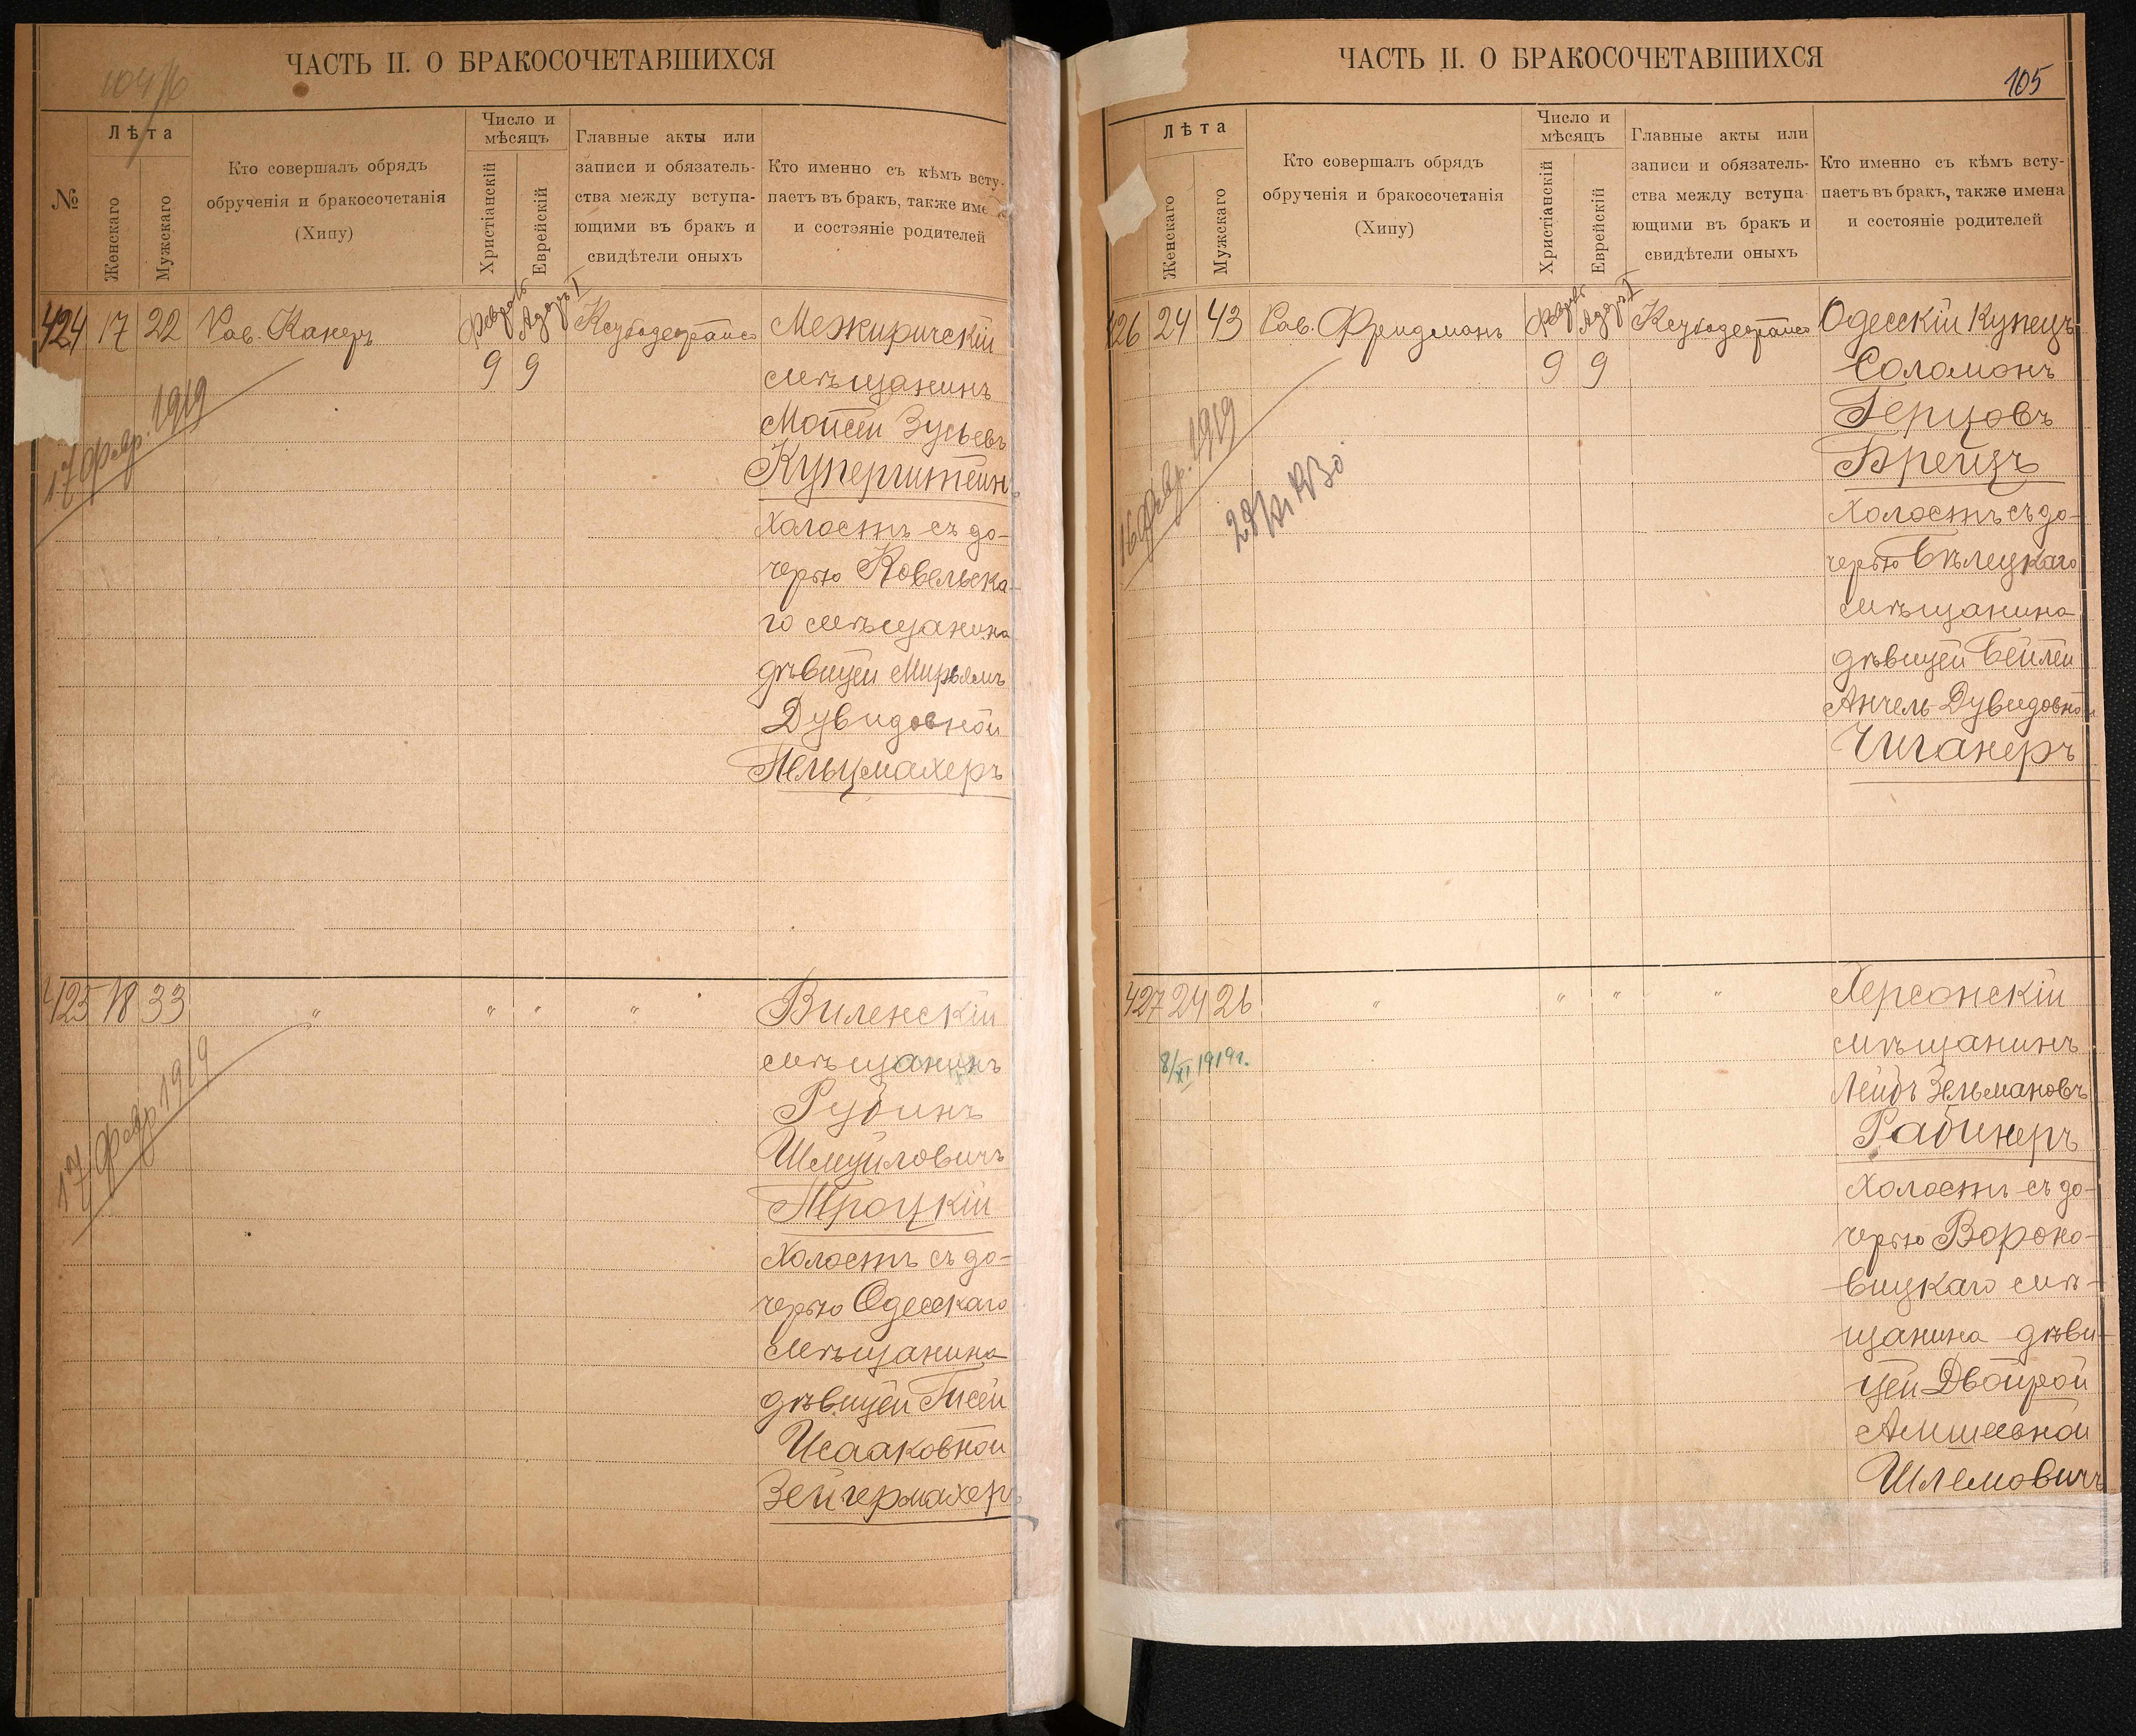 ЧАСТЬ II. О БРАКОСОЧЕТАВШИХСЯ
№
Лѣта
Женскаго
Мужскаго
Кто совершалъ обрядъ
обрученія и бракосочетанія
(Хипу)
Число и
мѣсяцъ
Христіанскій
Еврейскій
Главные акты или
записи и обязатель-
ства между вступа-
ющими въ бракъ и
свидѣтели оныхъ
Кто именно съ кѣмъ всту-
паетъ въ бракъ, также име
и состояніе родителей
424 17 22 Рав. Канеръ Февраль Адаръ I Межиричскій
9 9 мѣщанинъ
Моисей Зусьевъ
Куперштейнъ
холостъ съ до-
черью Ковельска-
го мѣщанина
дѣвицей Мирьямъ
Дувидовной
Пельцмахеръ
17 Февр. 1919
425 18 33 " " " " Виленскій
мѣщанинъ
Рубинъ
Шмуйловичъ
Троцкій
холостъ съ до-
черью Одесскаго
мѣщанина
дѣвицей Писей
Исааковной
Зейгермахеръ
17 Февр 1919
ЧАСТЬ II. О БРАКОСОЧЕТАВШИХСЯ
105
Лѣта
Женскаго
Мужскаго
Кто совершалъ обрядъ
обрученія и бракосочетанія
(Хипу)
Число и
мѣсяцъ
Христіанскій
Еврейскій
Главные акты или
записи и обязатель-
ства между вступа-
ющими въ бракъ и
свидѣтели оныхъ
Кто именно съ кѣмъ всту-
паетъ въ бракъ, также имена
и состояніе родителей
426 24 43 Рав. Фридманъ Февраль Адаръ I Одесскій Купецъ
9 9 Соломонъ
Герцовъ
Брейзъ
холостъ съ до-
черью Бѣлецкаго
мѣщанина
дѣвицей Бейлей
Анчель-Дувидовной
Чиганеръ
16 Февр. 1919
427 24 26 " " " " Херсонскій
мѣщанинъ
Лейбъ Зельмановъ
Рабинеръ
холостъ съ до-
черью Вороно-
вицкаго мѣ-
щанина дѣви-
цей Двойрой
Амшеевной
Шлемовичъ
8/XI 1919г.